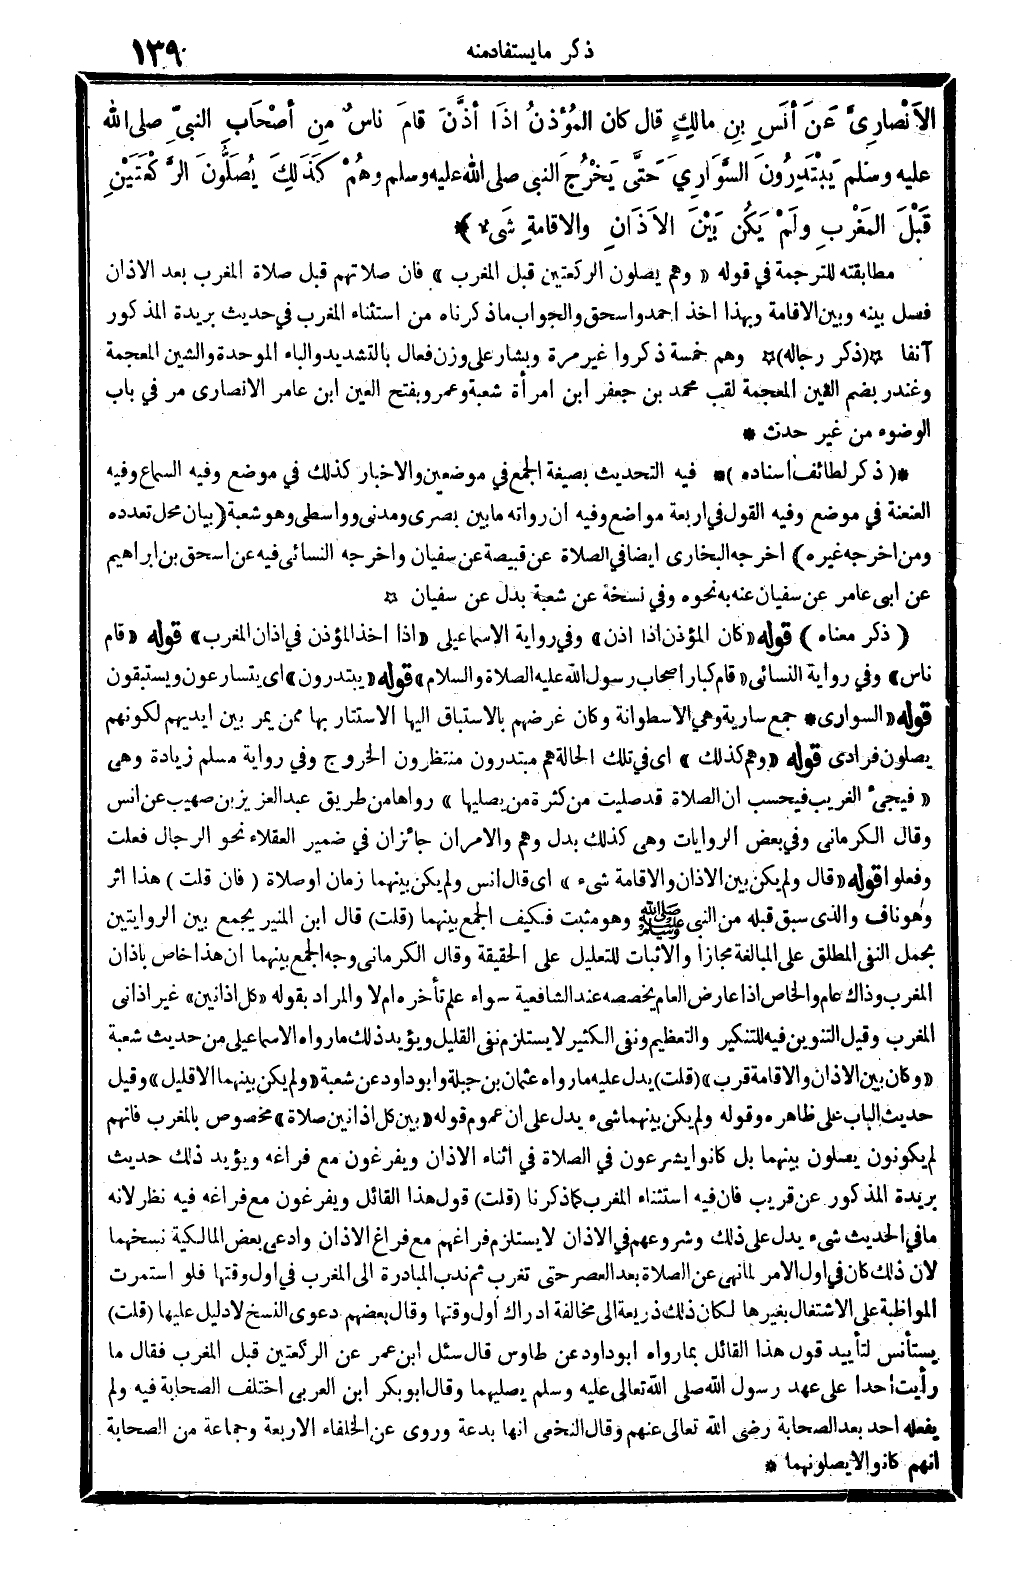 ذكر مايستفادمنه ١٣٩
الاَنْصارِىَّ عَنَ أنَسِ بنِ مالِكٍ قال كان المُؤذنُ اذَا أذَّنَ قامَ ناسٌ مِن أصْحَابِ النبىِّ صلى الله
عليه وسلم يَبْتَدِرُونَ السَّوَارِيَ حَتَّى يَخْرُجَ النبى صلى الله عليه وسلم وهُمْ كَذَلِكَ يُصَلُّونَ الرَّكْعَتَيْنِ
قَبْلَ المَغْرِبِ ولَمْ يَكُن بَيْنَ الاَذَانِ والاقامةِ شَىء ﴾ *
مطابقته للترجمة في قوله « وهم يصلون الركعتين قبل المغرب » فان صلاتهم قبل صلاة المغرب بعد الاذان
فصل بينه وبين الاقامة وبهذا اخذ احمد واسحق والجواب ماذكرناه من استثناء المغرب في حديث بريدة المذكور
آنفا ☆(ذكر رجاله)☆ وهم خمسة ذكروا غير مرة وبشار على وزن فعال بالتشديد والباء الموحدة والشين المعجمة
وغندر بضم الغين المعجمة لقب محمد بن جعفر ابن امرأة شعبة وعمرو بفتح العين ابن عامر الانصارى مر في باب
الوضوء من غير حدث *
*( ذكر لطائف اسناده )* فيه التحديث بصيغة الجمع في موضعين والاخبار كذلك في موضع وفيه السماع وفيه
العنعنة في موضع وفيه القول في اربعة مواضع وفيه ان رواته مابين بصرى ومدنى وواسطى وهو شعبة ( بيان محل تعدده
ومن اخرجه غيره ) اخرجه البخارى ايضا في الصلاة عن قبيصة عن سفيان واخرجه النسائى فيه عن اسحق بن ابراهيم
عن ابى عامر عن سفيان عنه به نحوه وفي نسخة عن شعبة بدل عن سفيان ☆
( ذكر معناه ) قوله « كان المؤذن اذا اذن » وفي رواية الاسماعيلى « اذا اخذ المؤذن في اذان المغرب » قوله « قام
ناس » وفي رواية النسائى « قام كبار اصحاب رسول الله عليه الصلاة والسلام » قوله « يبتدرون » اى يتسارعون ويستبقون
قوله « السوارى * جمع سارية وهي الاسطوانة وكان غرضهم بالاستباق اليها الاستتار بها ممن يمر بين ايديهم لكونهم
يصلون فرادى قوله « وهم كذلك » اى في تلك الحالة هم مبتدرون منتظرون الخروج وفي رواية مسلم زيادة وهى
« فيجىء الغريب فيحسب ان الصلاة قد صليت من كثرة من يصليها » رواها من طريق عبد العزيز بن صهيب عن انس
وقال الكرمانى وفي بعض الروايات وهى كذلك بدل وهم والامران جائزان في ضمير العقلاء نحو الرجال فعلت
وفعلوا قوله « قال ولم يكن بين الاذان والاقامة شىء » اى قال انس ولم يكن بينهما زمان او صلاة ( فان قلت ) هذا اثر
وهو ناف والذى سبق قبله من النبى ﷺ وهو مثبت فكيف الجمع بينهما (قلت) قال ابن المنير يجمع بين الروايتين
بحمل النفى المطلق على المبالغة مجازا والاثبات للتعليل على الحقيقة وقال الكرمانى وجه الجمع بينهما ان هذا خاص باذان
المغرب وذاك عام والخاص اذا عارض العام يخصصه عند الشافعية سواء علم تأخره ام لا والمراد بقوله «كل اذانين» غير اذانى
المغرب وقيل التنوين فيه للتنكير والتعظيم ونفى الكثير لا يستلزم نفى القليل ويؤيد ذلك مارواه الاسماعيلى من حديث شعبة
« وكان بين الاذان والاقامة قرب » (قلت) يدل عليه مارواه عثمان بن جبلة وابو داود عن شعبة « ولم يكن بينهما الا قليل » وقيل
حديث الباب على ظاهره وقوله ولم يكن بينهما شىء يدل على ان عموم قوله « بين كل اذانين صلاة » مخصوص بالمغرب فانهم
لم يكونون يصلون بينهما بل كانوا يشرعون في الصلاة في اثناء الاذان ويفرغون مع فراغه ويؤيد ذلك حديث
بريدة المذكور عن قريب فان فيه استثناء المغرب كما ذكرنا (قلت) قول هذا القائل ويفرغون مع فراغه فيه نظر لانه
مافي الحديث شىء يدل على ذلك وشروعهم في الاذان لا يستلزم فراغهم مع فراغ الاذان وادعى بعض المالكية نسخهما
لان ذلك كان في اول الامر لما نهى عن الصلاة بعد العصر حتى تغرب ثم ندب المبادرة الى المغرب في اول وقتها فلو استمرت
المواظبة على الاشتغال بغيرها لكان ذلك ذريعة الى مخالفة ادراك أول وقتها وقال بعضهم دعوى النسخ لا دليل عليها (قلت)
يستأنس لتأييد قول هذا القائل بمارواه ابو داود عن طاوس قال سئل ابن عمر عن الركعتين قبل المغرب فقال ما
رأيت احدا على عهد رسول الله صلى الله تعالى عليه وسلم يصليهما وقال ابو بكر ابن العربى اختلف الصحابة فيه ولم
يفعله احد بعد الصحابة رضى الله تعالى عنهم وقال النخعى انها بدعة وروى عن الخلفاء الاربعة وجماعة من الصحابة
انهم كانوا لا يصلونهما *